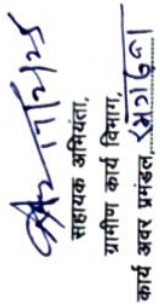 सहायक अभियंता,
ग्रामीण कार्य विभाग,
कार्य अवर प्रमंडल,